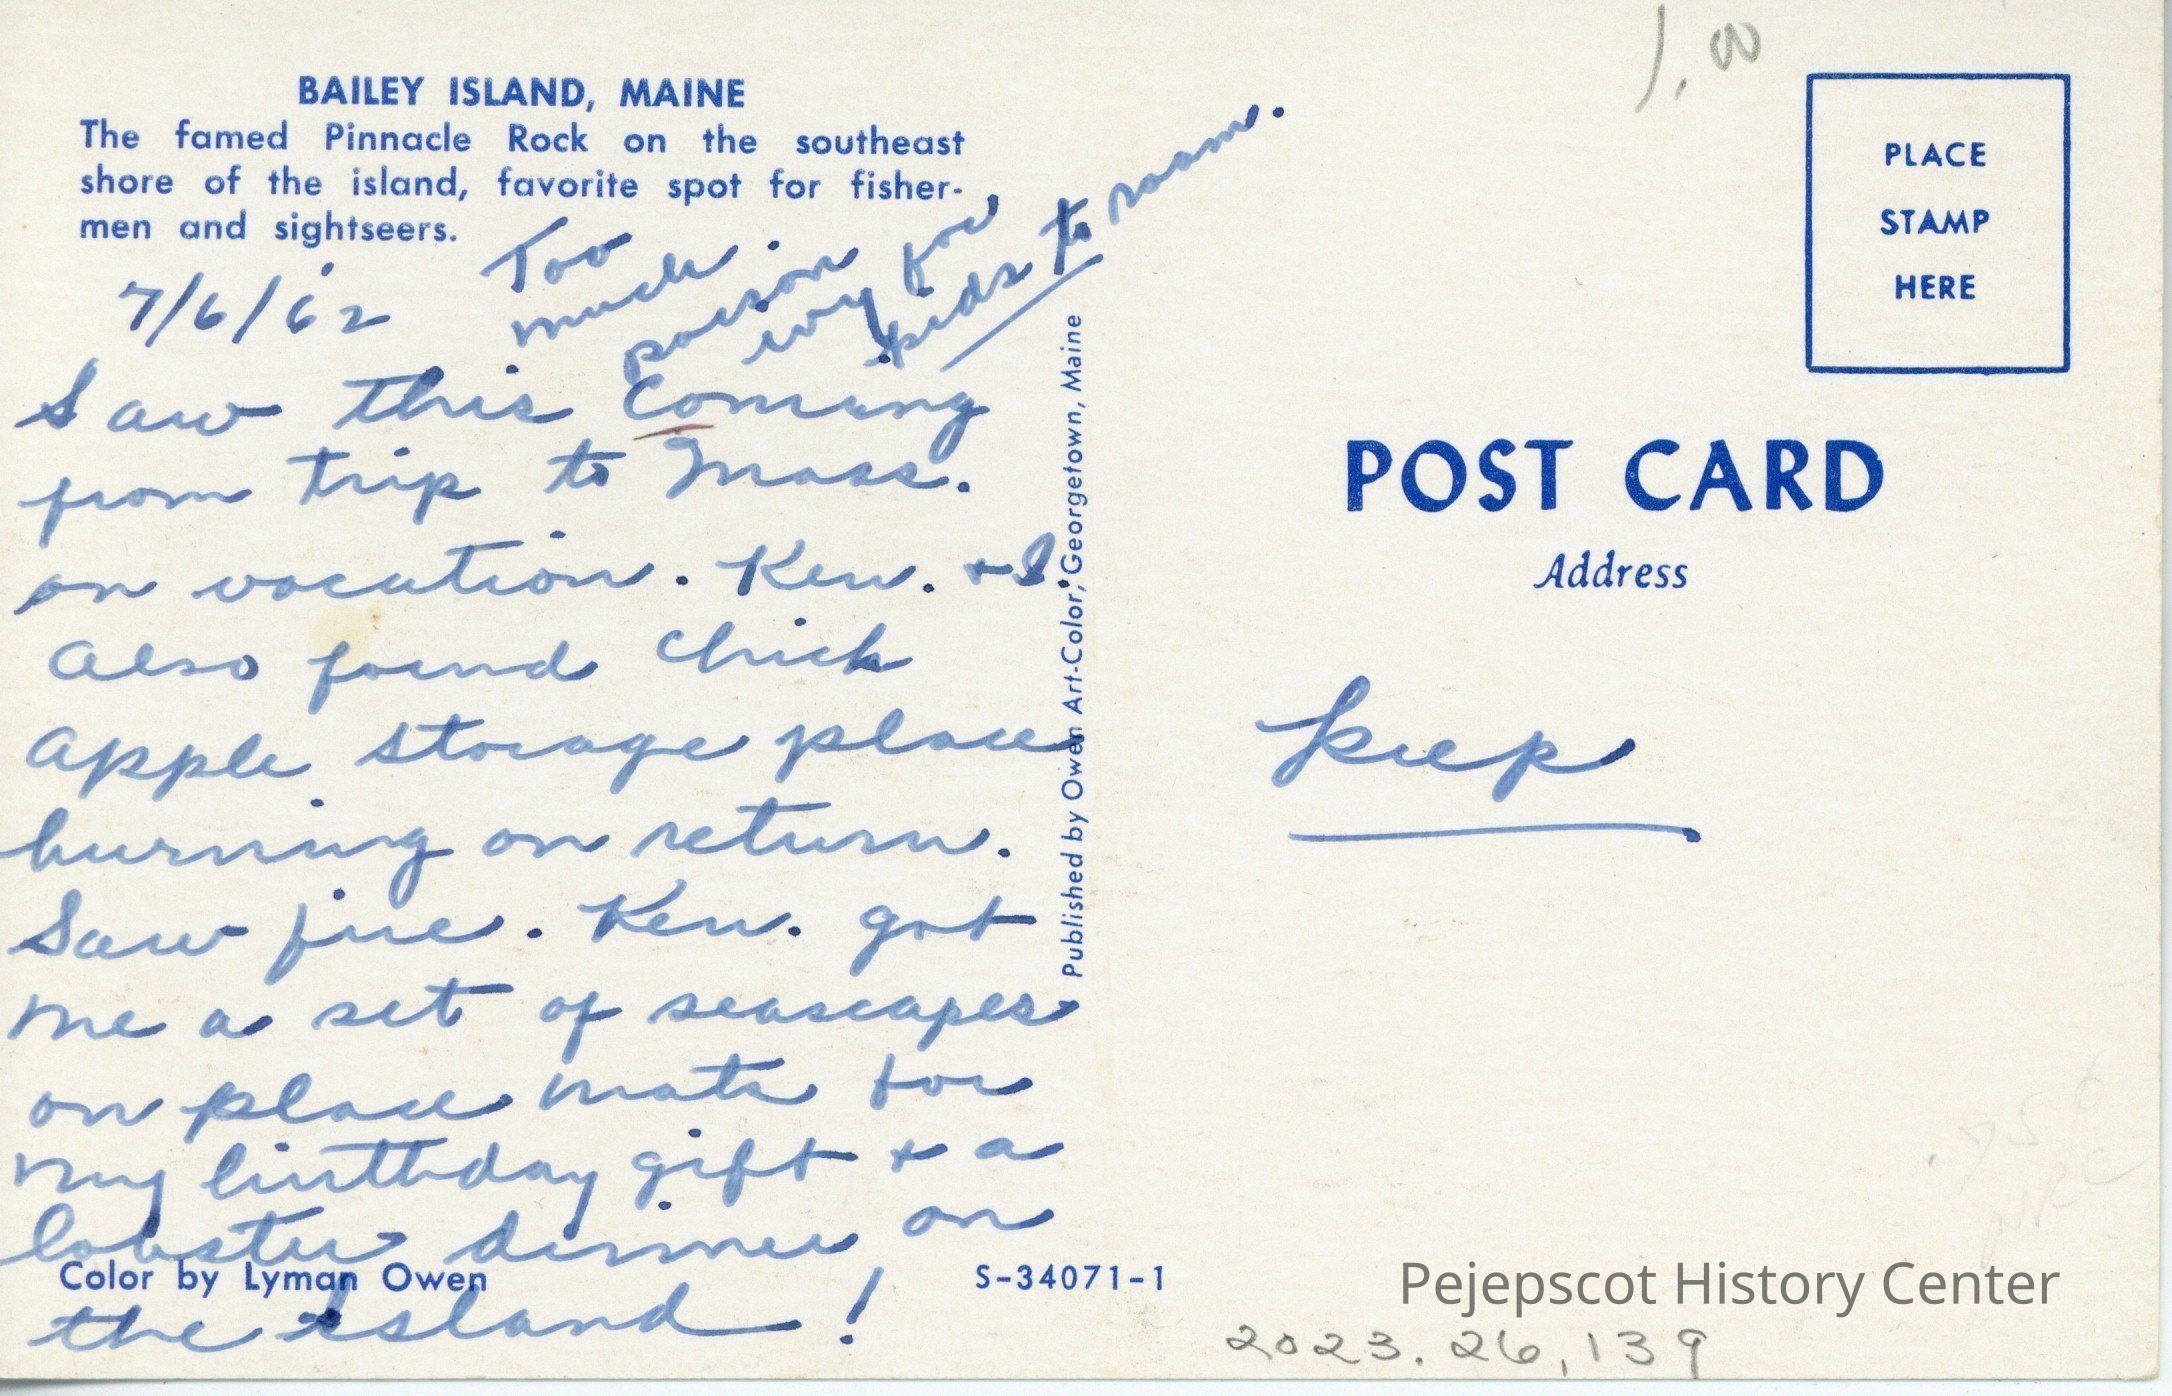 1.00
BAILEY ISLAND, MAINE
The famed Pinnacle Rock on the southeast
shore of the island, favorite spot for fisher-
men and sightseers.
PLACE
STAMP
HERE
7/6/62
Too
much
poison
ivy for
kids to roam.
Saw this Coming
from trip to Mass.
on vacation. Ken. + I.
Also found Chick
Apple storage place
burning on return.
Saw fire. Ken. got
me a set of seascapes
on place mats for
my birthday gift + a
lobster dinner on
the Island!
Published by Owen Art-Color, Georgetown, Maine
POST CARD
Address
Keep
Color by Lyman Owen
S-34071-1
Pejepscot History Center
2023.26.139